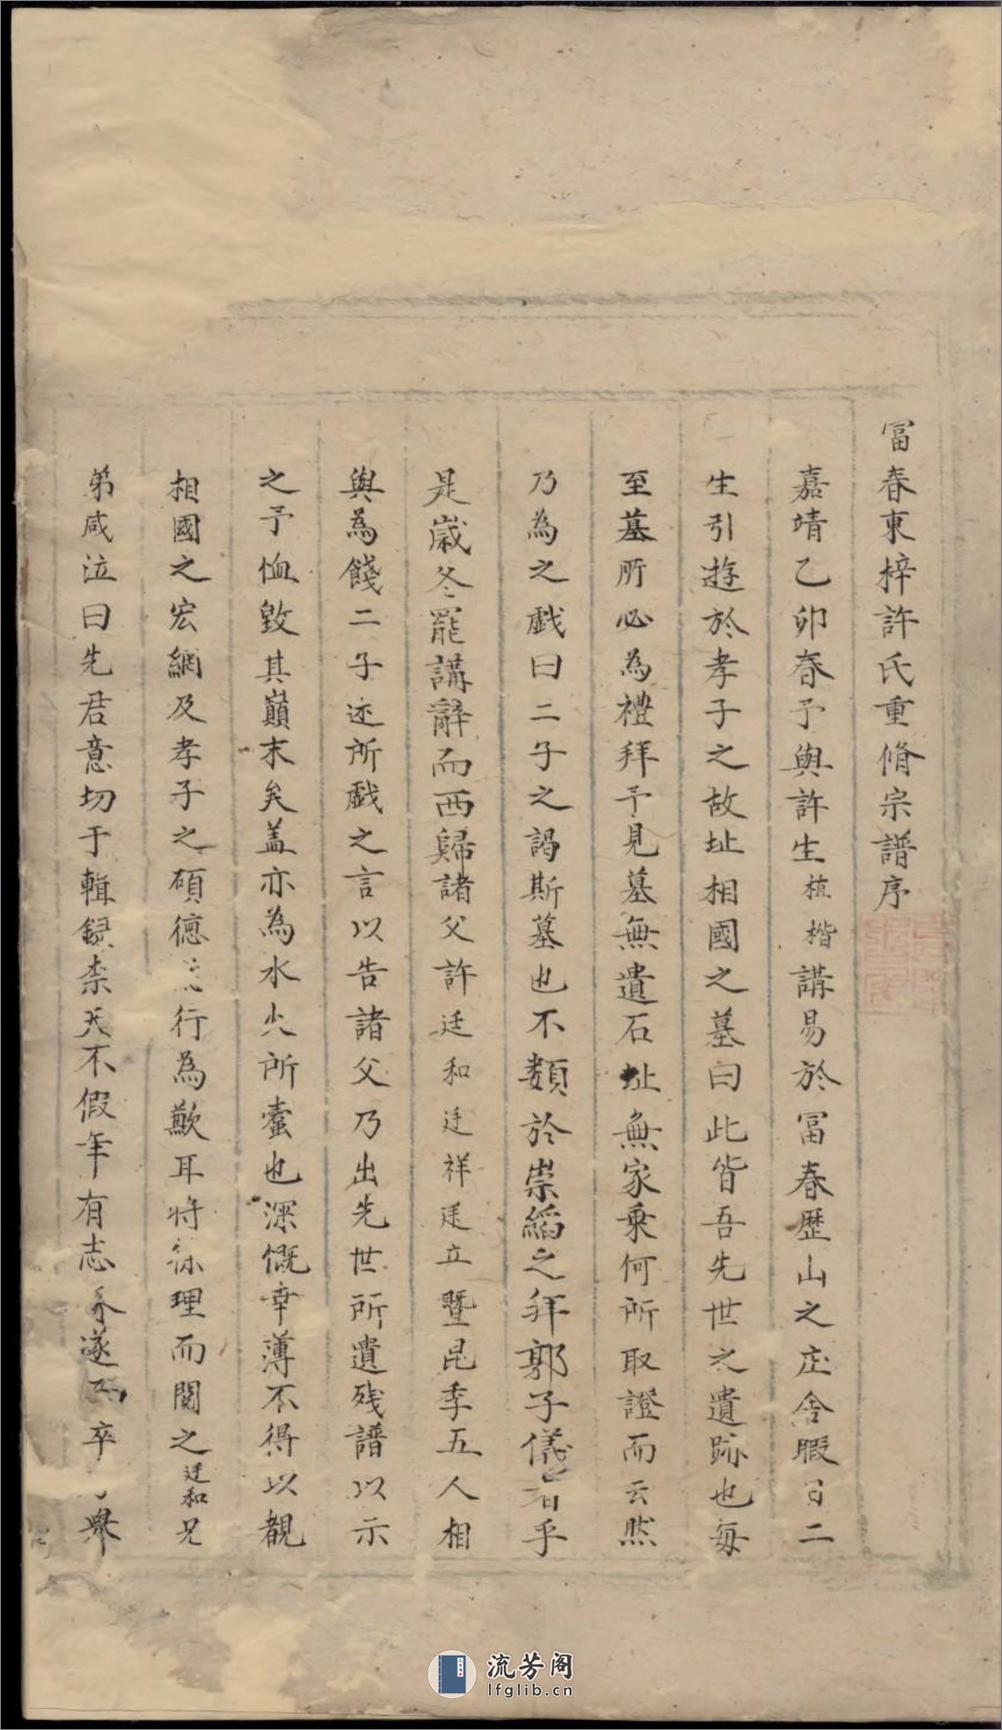 冨春東梓許氏重脩宗譜序
嘉靖乙夘春予與許生植楷講易於冨春歷山之庄舎暇日二
生引遊於孝子之故址相國之墓曰此皆吾先世之遺跡也每
至墓所必為禮拜予見墓無遺石址無家乗何所取證而云然
乃為之戱曰二子之謁斯墓也不類於崇縚之拜郭子儀者乎
是歳冬罷講辭而西歸諸父許廷和廷祥廷立曁昆季五人相
與為餞二子述所戱之言以告諸父乃出先世所遺殘譜以示
之予恤毀其巔末矣盖亦為水火所蠧也深慨幸薄不得以觀
相國之宏綱及孝子之碩德行為歉耳將理而閱之廷和兄
弟咸泣曰先君意切于輯録柰天不假年有志遂卒舉
流芳阁
lfglib.cn